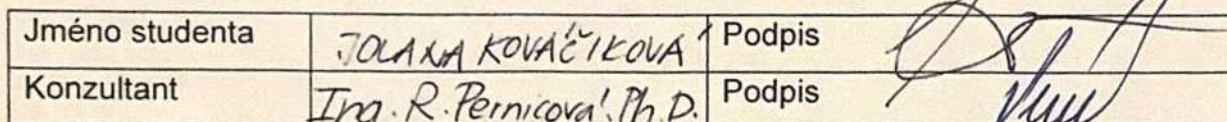 Jméno studenta JOLANA KOVÁČIKOVÁ Podpis
Konzultant Ing. R. Pernicová, Ph.D. Podpis